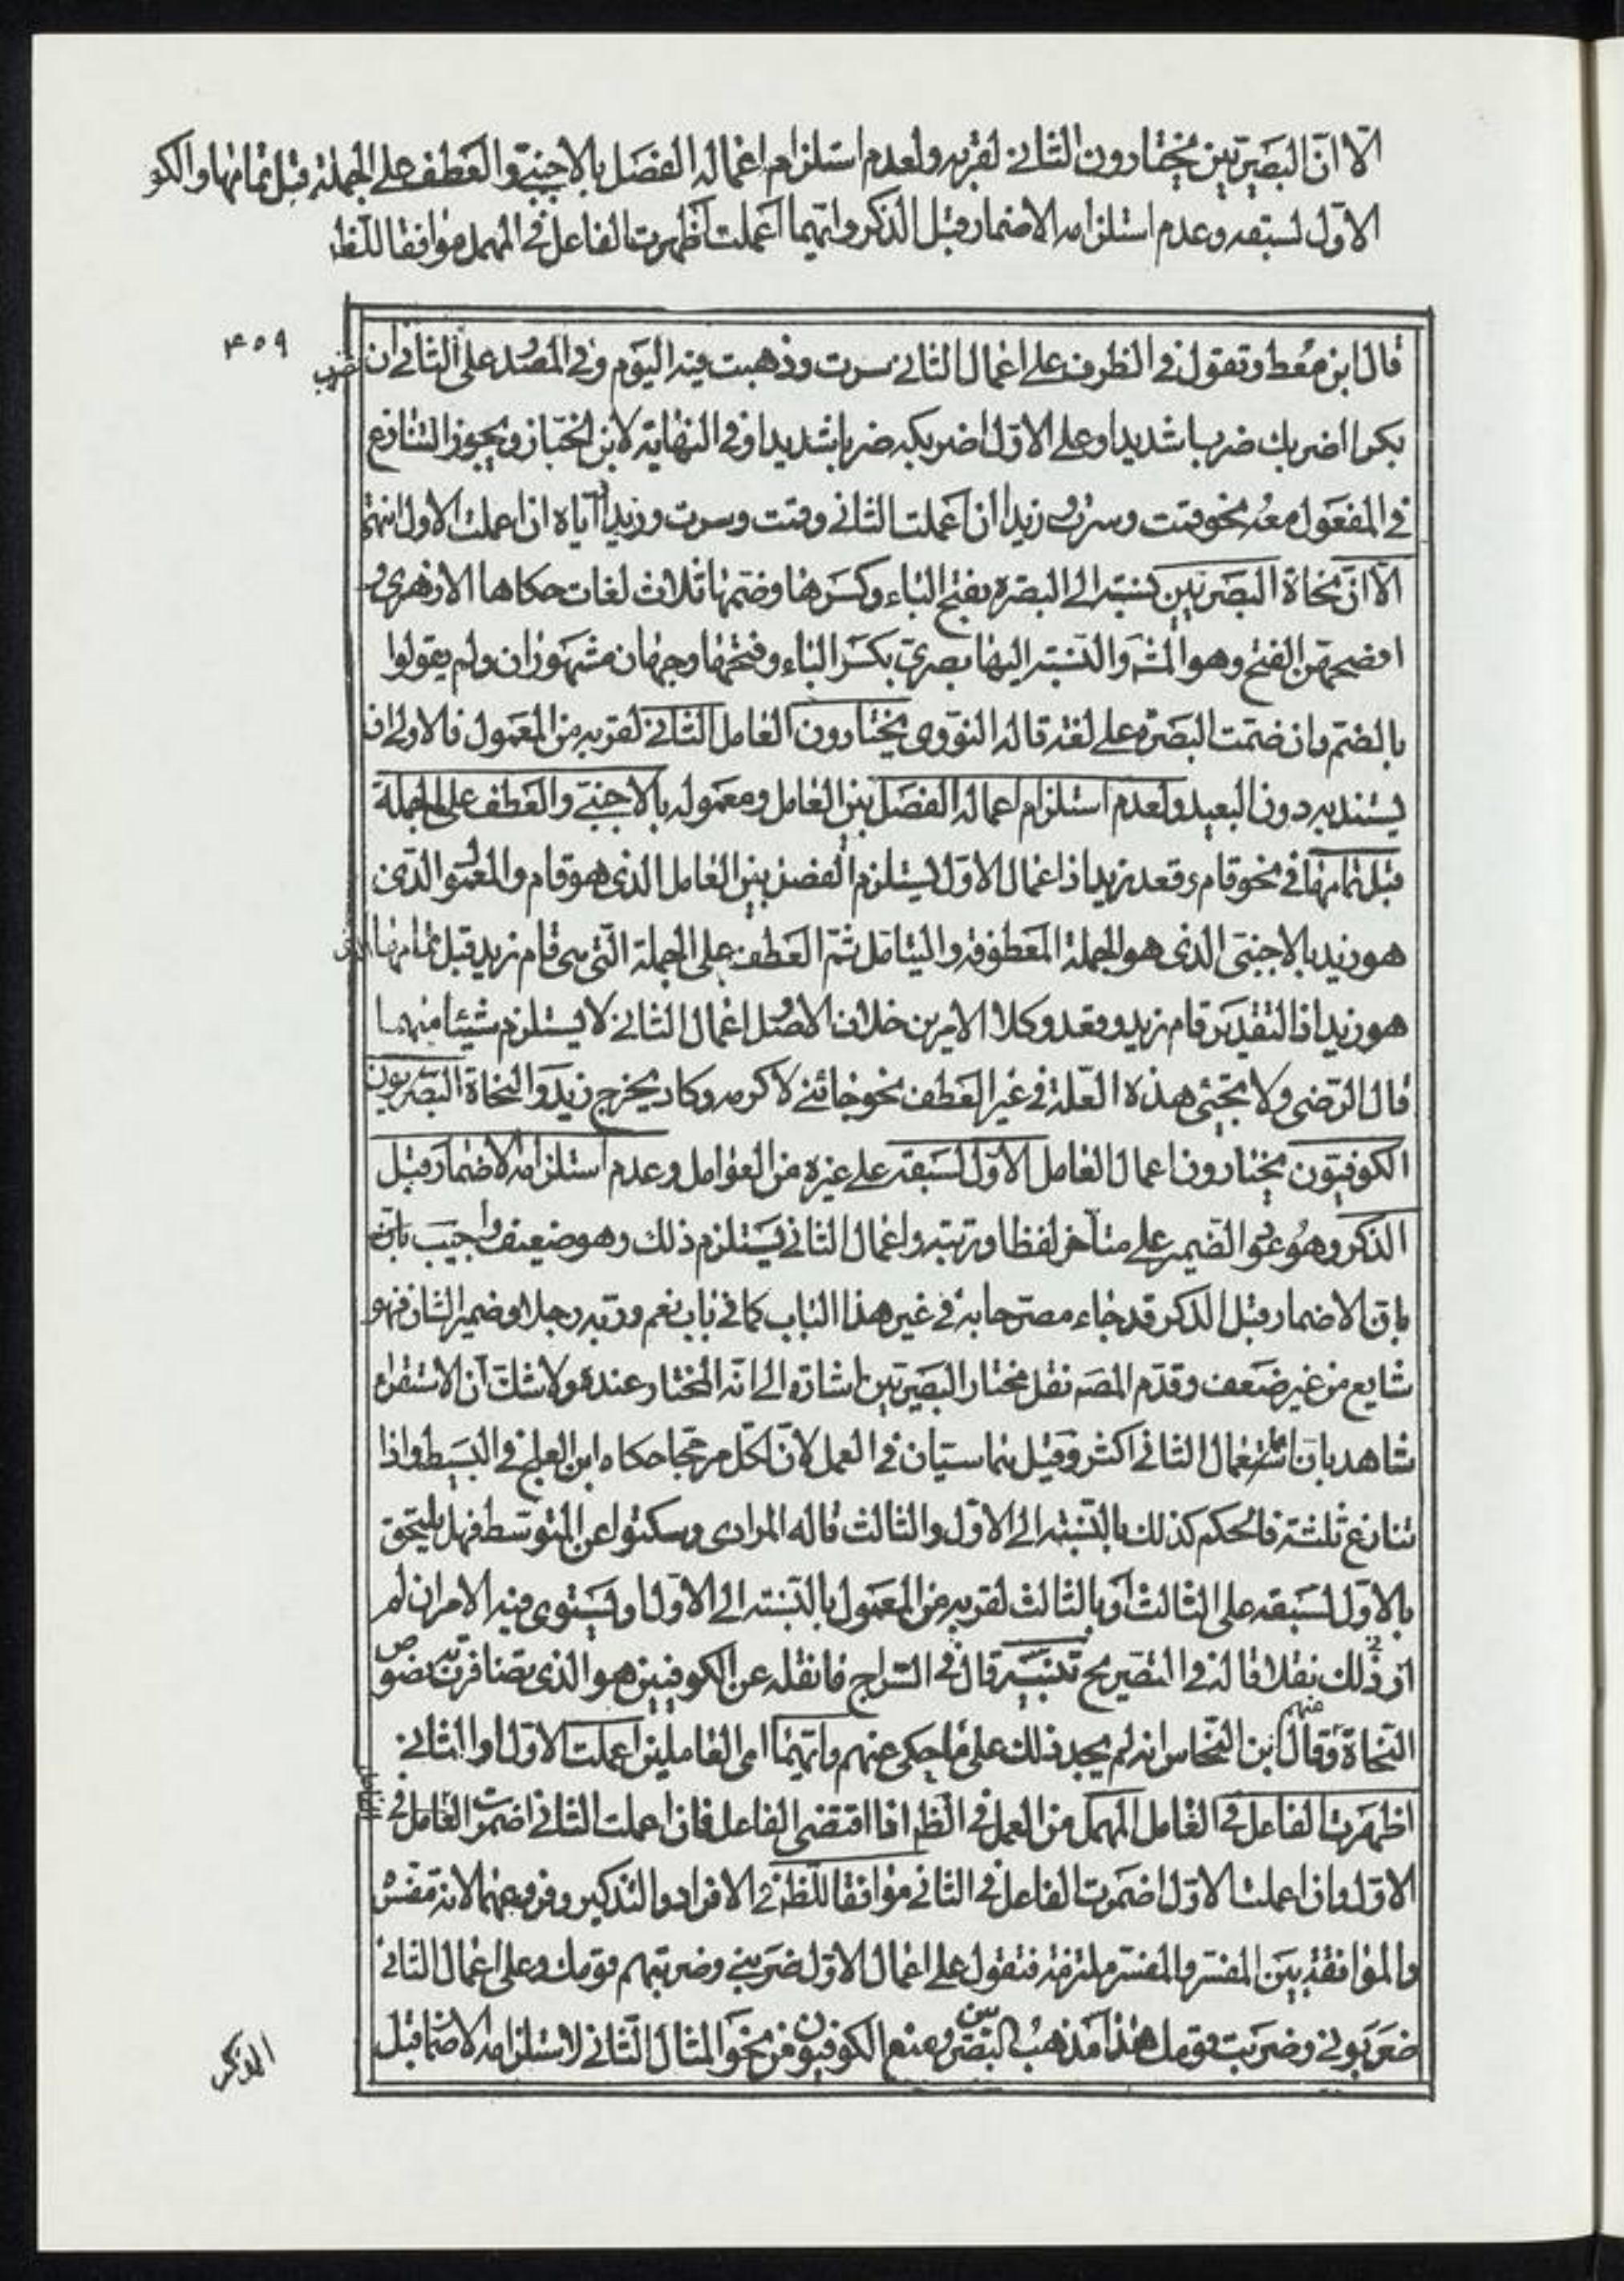 الّا انّ البصريّين يختارون الثانى لقربه ولعدم استلزام اعماله الفصل بالاجنبىّ والعطف على الجملة قبل تمامها والكو
الاوّل لسبقه وعدم استلزامه الاضمار قبل الذكر وايّهما اعملت اظهرت الفاعل فى المهمل موافقا للظا
۴۰۹
قال ابن معط وتقول فى الظرف على اعمال الثانى سرت وذهبت فيه اليوم وفى المصدر على الثانى ان ضرب
بكرا اضربك ضربا شديدا وعلى الاوّل اضربكه ضربا شديدا وفى النهاية لابن الخبّاز ويجوز التنازع
فى المفعول معه نحو قمت وسرت و زيدا ان اعملت الثانى وقمت وسرت وزيدا اياه ان اعملت الاول انتهى
الّا انّ نحاة البصريّين نسبة الى البصرة بفتح الباء وكسرها وضمّها ثلاث لغات حكاها الازهرى و
افصحهنّ الفتح وهو المشه والنسبة اليها بصرىّ بكسر الباء وفتحها وجهان مشهوران ولم يقولوا
بالضمّ وان ضمّت البصرة على لغة قاله النووى يختارون العامل الثانى لقربه من المعمول فالاولى ان
يستند به دون البعيد ولعدم استلزام اعماله الفصل بين العامل ومعموله بالاجنبىّ والعطف على الجملة
قبل تمامها فى نحو قام وقعد زيد اذ اعمال الاوّل يستلزم الفصل بين العامل الذى هو قام والمعمول الّذى
هو زيد بالاجنبى الذى هو الجملة المعطوفة واليتامّل ثمّ العطف على الجملة الّتى هى قام زيد قبل تمامها الذى
هو زيد اذ التقدير قام زيد وقعد وكلا الامرين خلاف الاصل واعمال الثانى لا يستلزم شيئا منهما
قال الرّضى ولا تجئى هذه العلة فى غير العطف نحو جائنى لاكرمه وكاد يخرج زيد والنحاة البصريون
الكوفيّون يختارون اعمال العامل الاوّل لسبقه على غيره من العوامل وعدم استلزامه الاضمار قبل
الذكر وهو عود الضمير على متاخر لفظا ورتبة واعمال الثانى يستلزم ذلك وهو ضعيف واجيب بانّه
بانّ الاضمار قبل الذكر قد جاء مصرّحا به فى غير هذا الباب كما فى باب نعم وربّه رجلا وضمير الشان فهو
شايع من غير ضعف وقدّم المصه نقل مختار البصريّين اشارة الى انّه المختار عنده ولا شك انّ الاستقراء
شاهد بان اعمال الثانى اكثر وقيل هما سيّان فى العمل لانّ لكل مرجّحا حكاه ابن العلج فى البسيط واذا
تنازع ثلثة فالحكم كذلك بالنسبة الى الاوّل والثالث قاله المرادى وسكتوا عن المتوسّط فهل يلتحق
بالاوّل لسبقه على الثالث او بالثالث لقربه من المعمول بالنسبة الى الاوّل او يستوى فيه الامران لم
ار فى ذلك نقلا قاله فى التصريح تنبيه قال فى السّراج ما نقله عن الكوفيين هو الذى تضافرت به نصوص
النّحاة منهم وقال ابن النّحاس انه لم يجد ذلك على ما حكى عنهم وايّهما اى العاملين اعملت الاوّل او الثانى
اظهرت الفاعل فى العامل المهمل من العمل فى الظم اذا اقتضى الفاعل فان اعملت الثانى اضمرت الفاعل فى
الاوّل وان اعملت الاوّل اضمرت الفاعل فى الثانى موافقا للظم فى الافراد والتذكير وفروعهما لانه مفسّر
والموافقة بين المفسّر والمفسّر ملتزمة فتقول على اعمال الاوّل ضربنى وضربتهم قومك وعلى اعمال الثانى
ضربونى وضربت قومك هذا مذهب البصريين ومنع الكوفيون من نحو المثال الثانى لاستلزامه الاضما قبل
الذكر